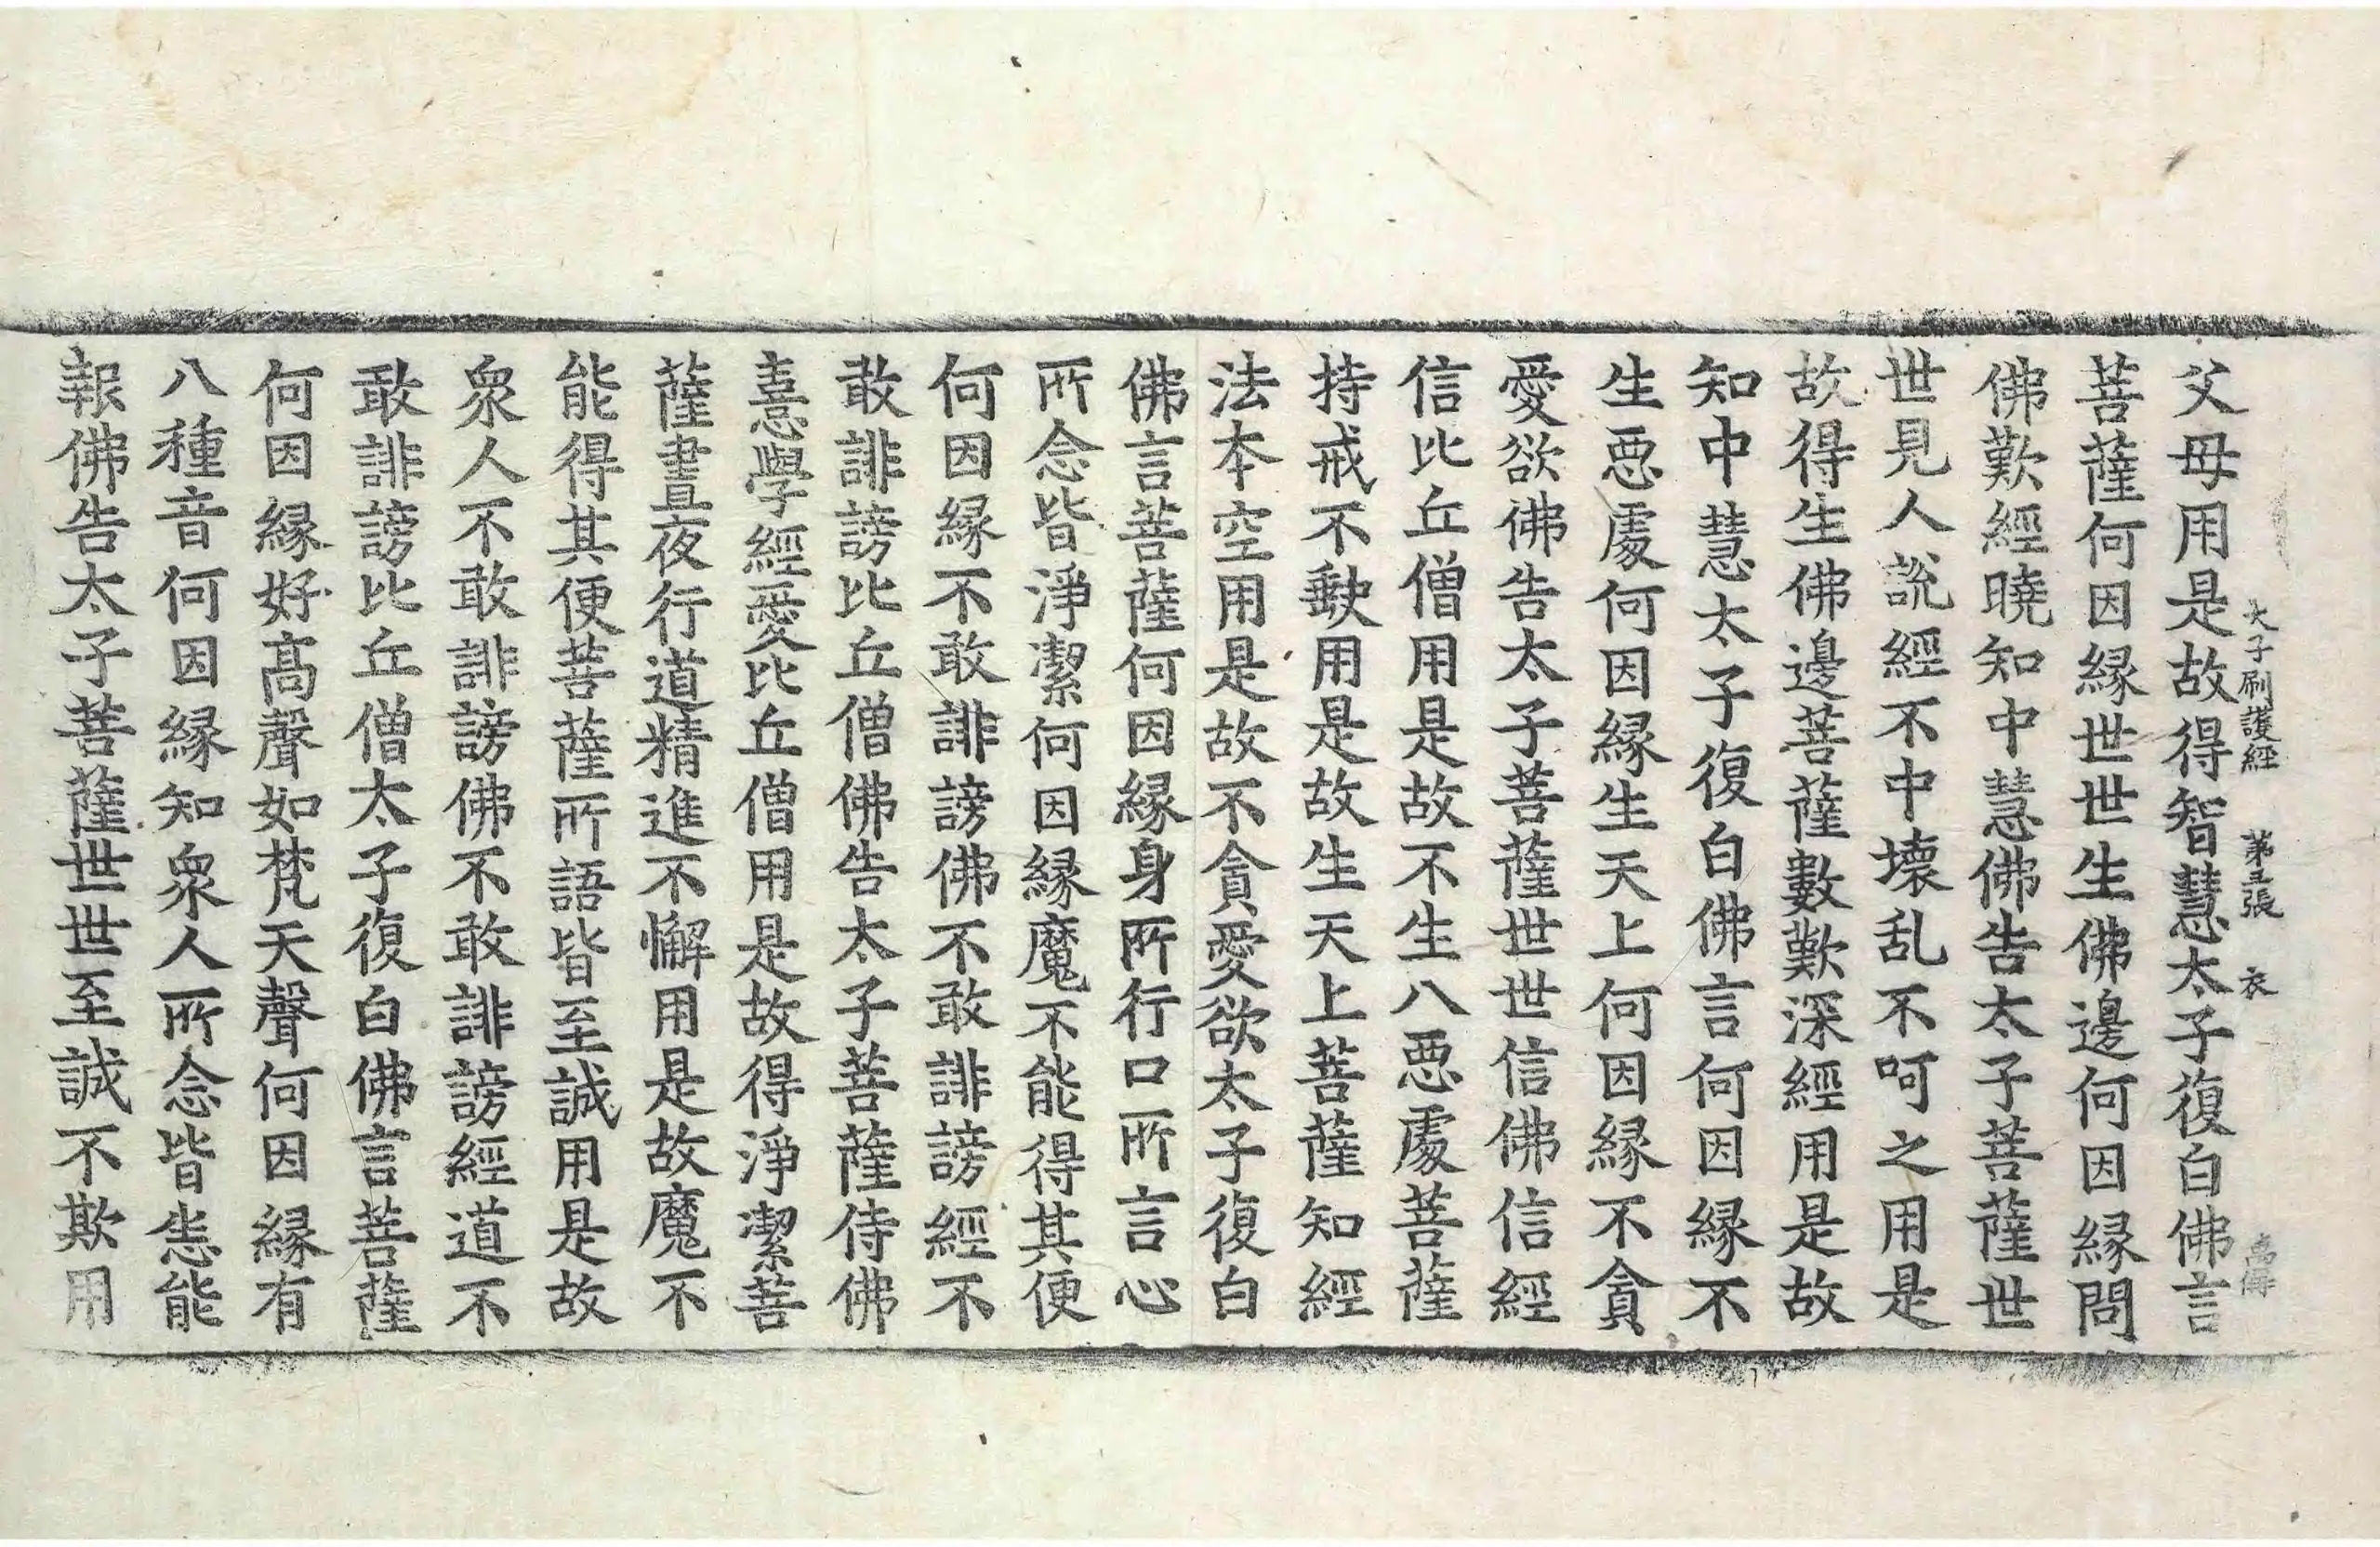 太子刷護經 第五張 衣
父母用是故得智慧太子復白佛言
菩薩何因緣世世生佛邊何因緣問
佛歎經曉知中慧佛告太子菩薩世
世見人說經不中壞乱不呵之用是
故得生佛邊菩薩數數歎深經用是故
知中慧太子復白佛言何因緣不
生惡處何因緣生天上何因緣不貪
愛欲佛告太子菩薩世世信佛信經
信比丘僧用是故不生八惡處菩薩
持戒不缺用是故生天上菩薩知經
法本空用是故不貪愛欲太子復白
佛言菩薩何因緣身所行口所言心
所念皆淨潔何因緣魔不能得其便
何因緣不敢誹謗佛不敢誹謗經不
敢誹謗比丘僧佛告太子菩薩侍佛
憙學經愛比丘僧用是故得淨潔菩
薩晝夜行道精進不懈用是故魔不
能得其便菩薩所語皆至誠用是故
衆人不敢誹謗佛不敢誹謗經道不
敢誹謗比丘僧太子復白佛言菩薩
何因緣好高聲如梵天聲何因緣有
八種音何因緣知衆人所念皆悉能
報佛告太子菩薩世世至誠不欺用